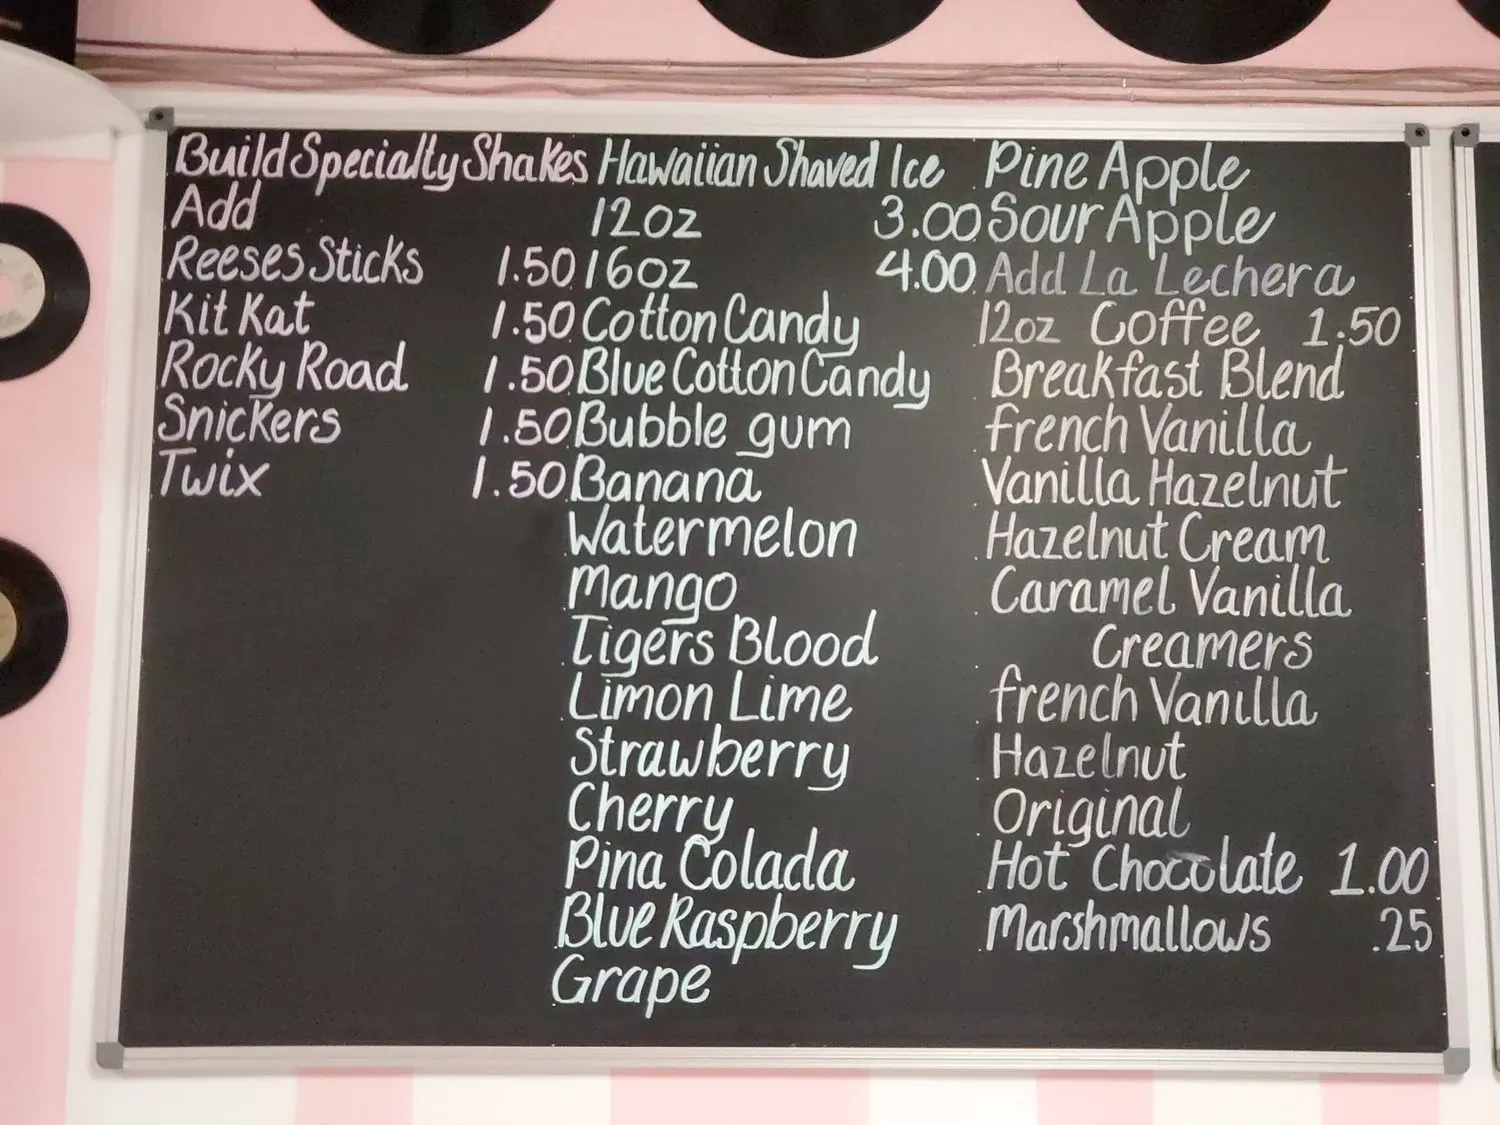 Build Specialty Shakes
Add
Reeses Sticks 1.50
Kit Kat 1.50
Rocky Road 1.50
Snickers 1.50
Twix 1.50
Hawaiian Shaved Ice
12oz 3.00
16oz 4.00
Cotton Candy
Blue Cotton Candy
Bubble gum
Banana
Watermelon
Mango
Tigers Blood
Limon Lime
Strawberry
Cherry
Pina Colada
Blue Raspberry
Grape
Pine Apple
Sour Apple
Add La Lechera
12oz Coffee 1.50
Breakfast Blend
french Vanilla
Vanilla Hazelnut
Hazelnut Cream
Caramel Vanilla
Creamers
french Vanilla
Hazelnut
Original
Hot Chocolate 1.00
Marshmallows .25